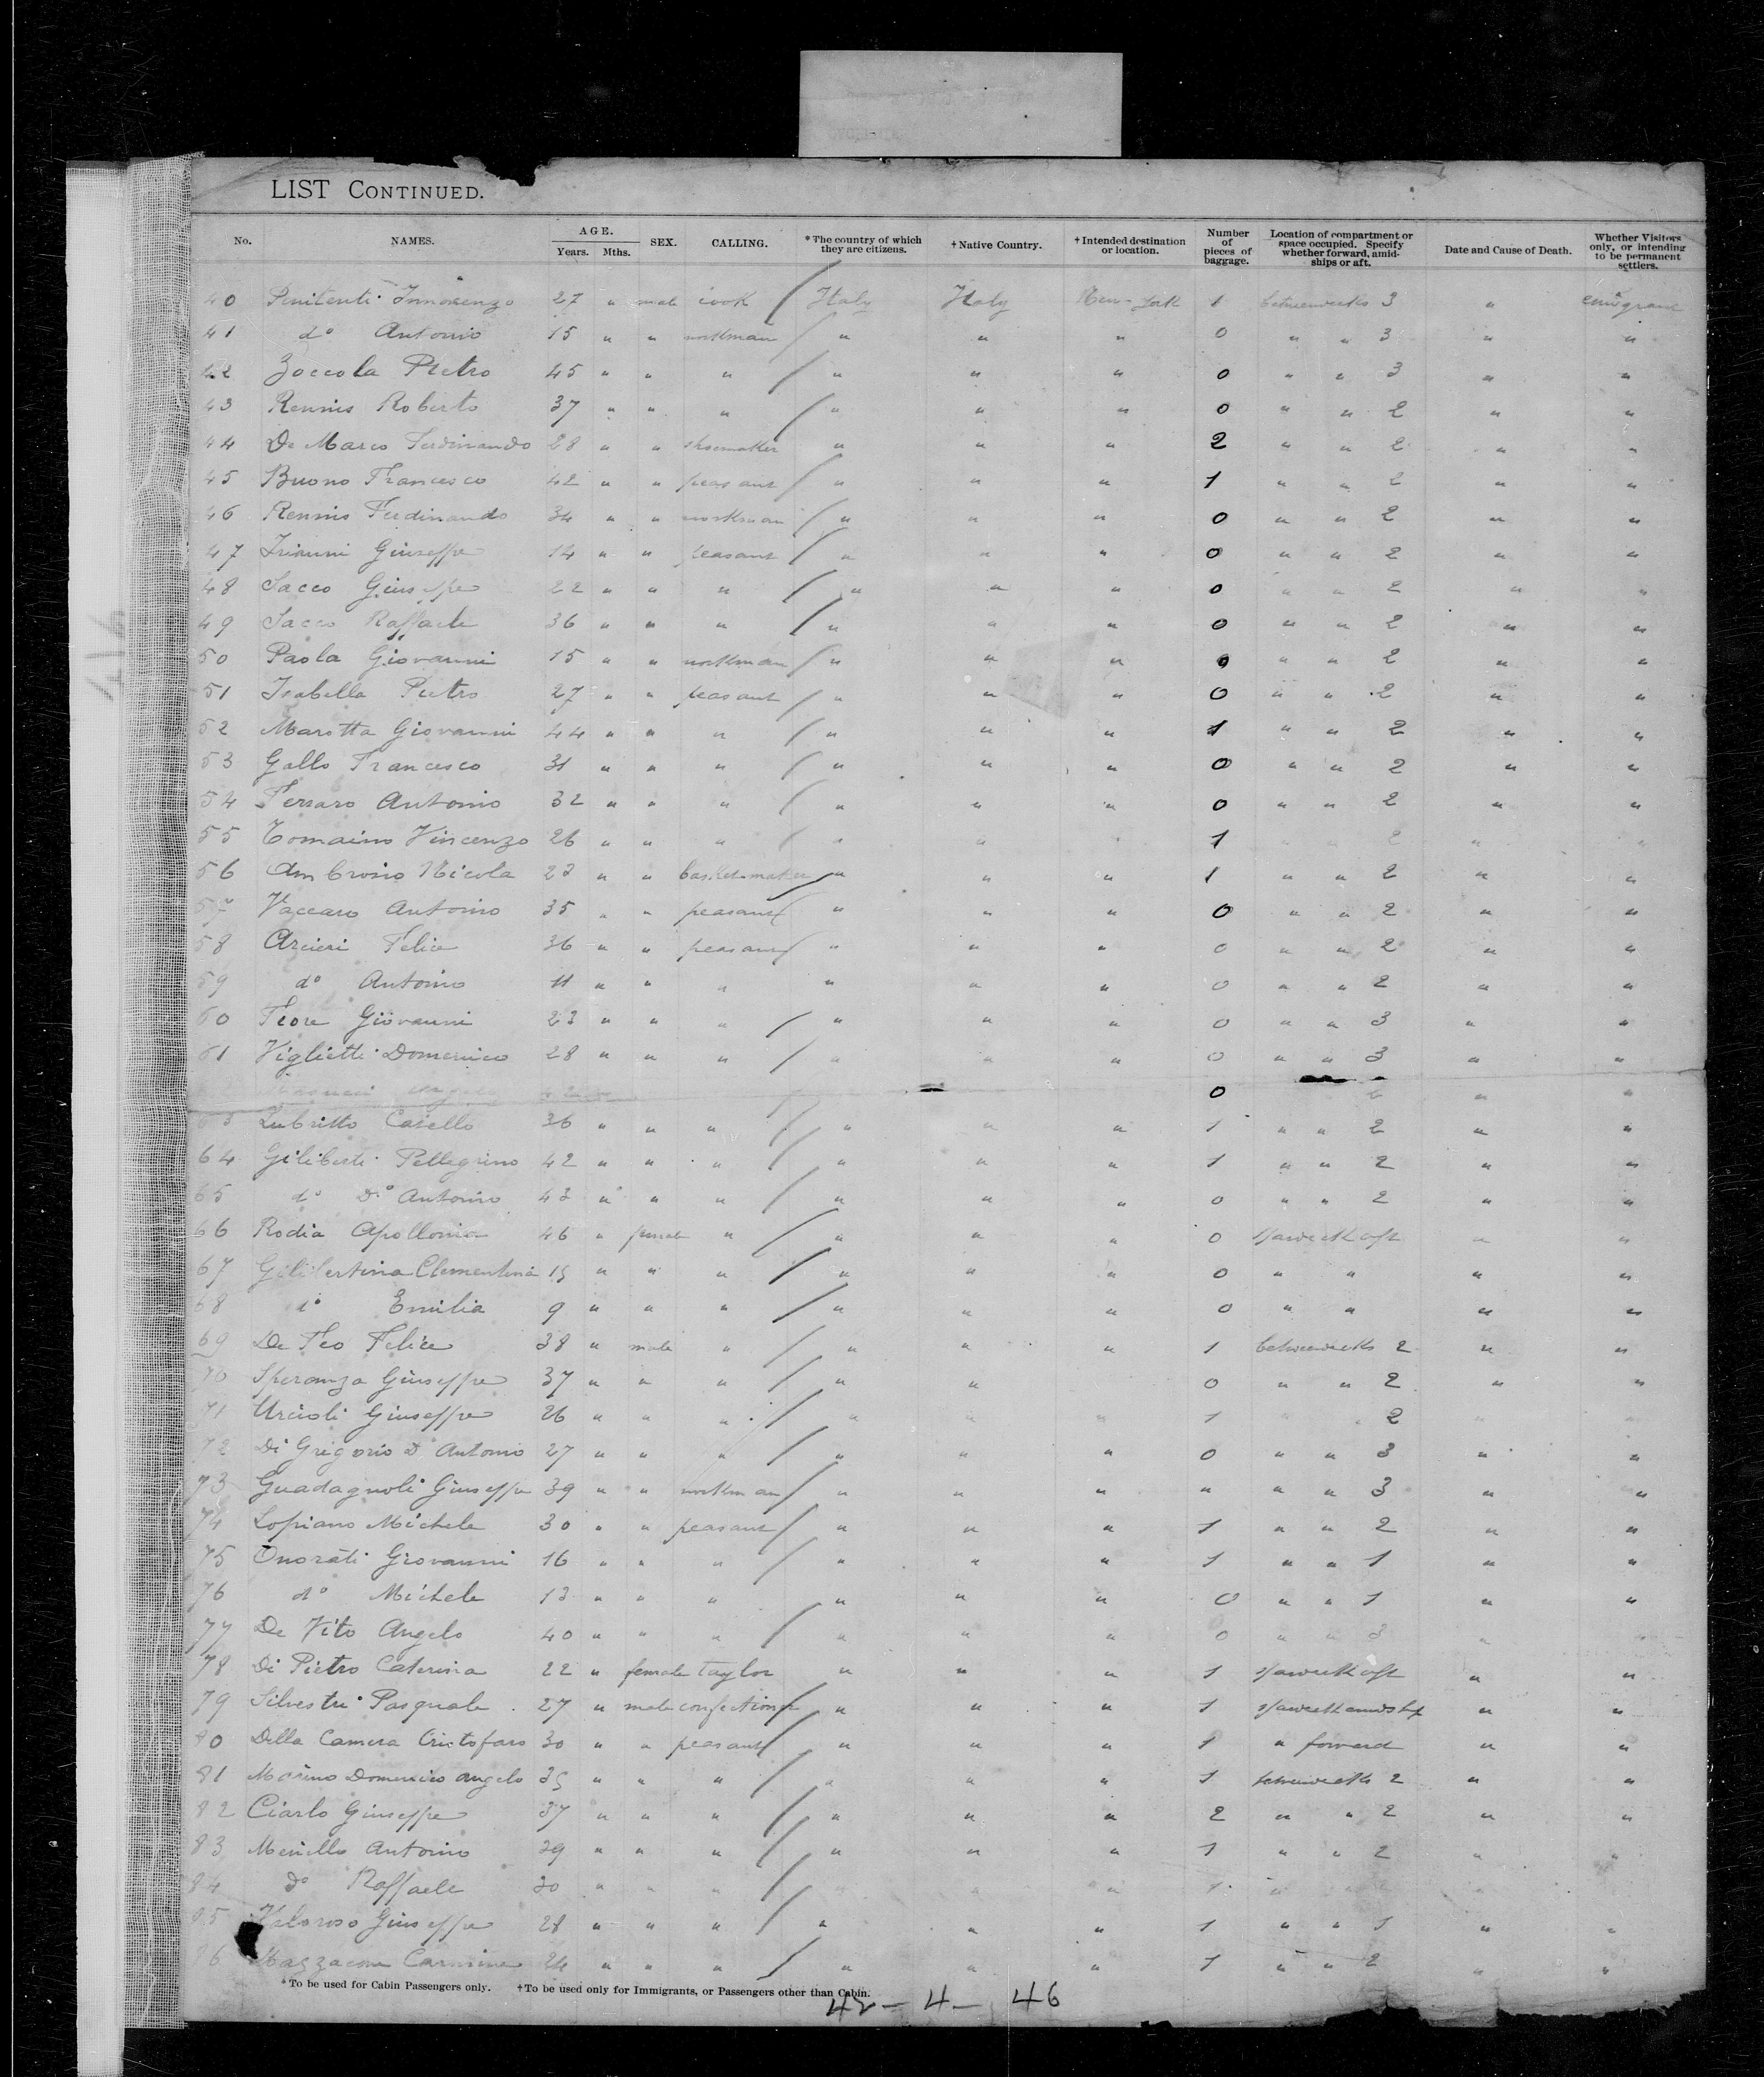 LIST CONTINUED.
No. NAMES. AGE. Years. Mths. SEX. CALLING. *The country of which they are citizens. †Native Country. †Intended destination or location. Number of pieces of baggage. Location of compartment or space occupied. Specify whether forward, amidships or aft. Date and Cause of Death. Whether Visitors only, or intending to be permanent settlers.
40 Penitenti Innocenzo 27 " male cook Italy Italy New-York 1 betweendecks 3 " emigrant
41 do Antonio 15 " " workman " " " 0 " " 3 " "
42 Zoccola Pietro 45 " " " " " " 0 " " 3 " "
43 Rennis Roberto 37 " " " " " " 0 " " 2 " "
44 De Marco Ferdinando 28 " " shoemaker " " " 2 " " 2 " "
45 Buono Francesco 42 " " peasant " " " 1 " " 2 " "
46 Rennis Ferdinando 34 " " workman " " " 0 " " 2 " "
47 Giuseppe 14 " " peasant " " " 0 " " 2 " "
48 Sacco Giuseppe 22 " " " " " " 0 " " 2 " "
49 Sacco Raffaele 36 " " " " " " 0 " " 2 " "
50 Paola Giovanni 15 " " workman " " " 0 " " 2 " "
51 Isabella Pietro 27 " " peasant " " " 0 " " 2 " "
52 Marotta Giovanni 44 " " " " " " 1 " " 2 " "
53 Gallo Francesco 31 " " " " " " 0 " " 2 " "
54 Ferraro Antonio 32 " " " " " " 0 " " 2 " "
55 Tomaino Vincenzo 26 " " " " " " 1 " " 2 " "
56 Ambrosio Nicola 23 " " basket-maker " " " 1 " " 2 " "
57 Vaccaro Antonio 35 " " peasant " " " 0 " " 2 " "
58 Arcieri Felice 36 " " peasant " " " 0 " " 2 " "
59 do Antonio 11 " " " " " " 0 " " 2 " "
60 Fiore Giovanni 23 " " " " " " 0 " " 3 " "
61 Viglietti Domenico 28 " " " " " " 0 " " 3 " "
0 " "
63 Lubritto Carello 36 " " " " " " 1 " " 2 " "
64 Giliberti Pellegrino 42 " " " " " " 1 " " 2 " "
65 do Do Antonio 43 " " " " " " 0 " " 2 " "
66 Rodia Apollonia 46 " female " " " " 0 aft " "
67 Gilibertina Clementina 15 " " " " " " 0 " " " "
68 do Emilia 9 " " " " " " 0 " " " "
69 De Feo Felice 38 " male " " " " 1 betweendecks 2 " "
70 Speranza Giuseppe 37 " " " " " 0 " " 2 " "
71 Urcioli Giuseppe 26 " " " " " " 1 " " 2 " "
72 Di Gregorio D Antonio 27 " " " " " " 0 " " 3 " "
73 Guadagnoli Giuseppe 39 " " workman " " " " " " 3 " "
74 Lopiano Michele 30 " " peasant " " " 1 " " 2 " "
75 Onorati Giovanni 16 " " " " " " 1 " " 1 " "
76 do Michele 13 " " " " " " 0 " " 1 " "
77 De Vito Angelo 40 " " " " " " 0 " " 3 " "
78 Di Pietro Caterina 22 " female taylor " " " 1 aft " "
79 Silvestri Pasquale 27 " male " " " 1 " "
80 Della Camera Cristofaro 30 " " peasant " " " 1 " forward " "
81 Marino Domenico Angelo 35 " " " " " " 1 betweendecks 2 " "
82 Ciarlo Giuseppe 37 " " " " " " 2 " " 2 " "
83 Menillo Antonio 29 " " " " " " 1 " " 2 " "
84 do Raffaele 30 " " " " " " 1 " "
85 Valoroso Giuseppe 28 " " " " " " 1 " " 1 " "
86 Mazzacane Carmine 24 " " " " " " 1 " " 2 " "
*To be used for Cabin Passengers only. †To be used only for Immigrants, or Passengers other than Cabin.
42 - 4 - 46